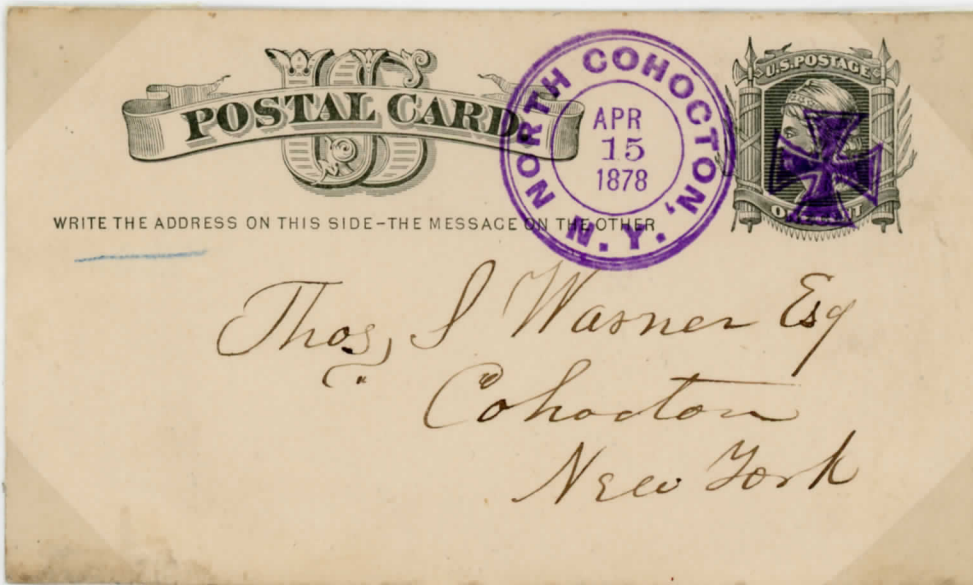 US
POSTAL CARD
U.S. POSTAGE
NORTH COHOCTON, N.Y.
APR
15
1878
WRITE THE ADDRESS ON THIS SIDE–THE MESSAGE ON THE OTHER
Thos, S Warner Esq
Cohocton
New York